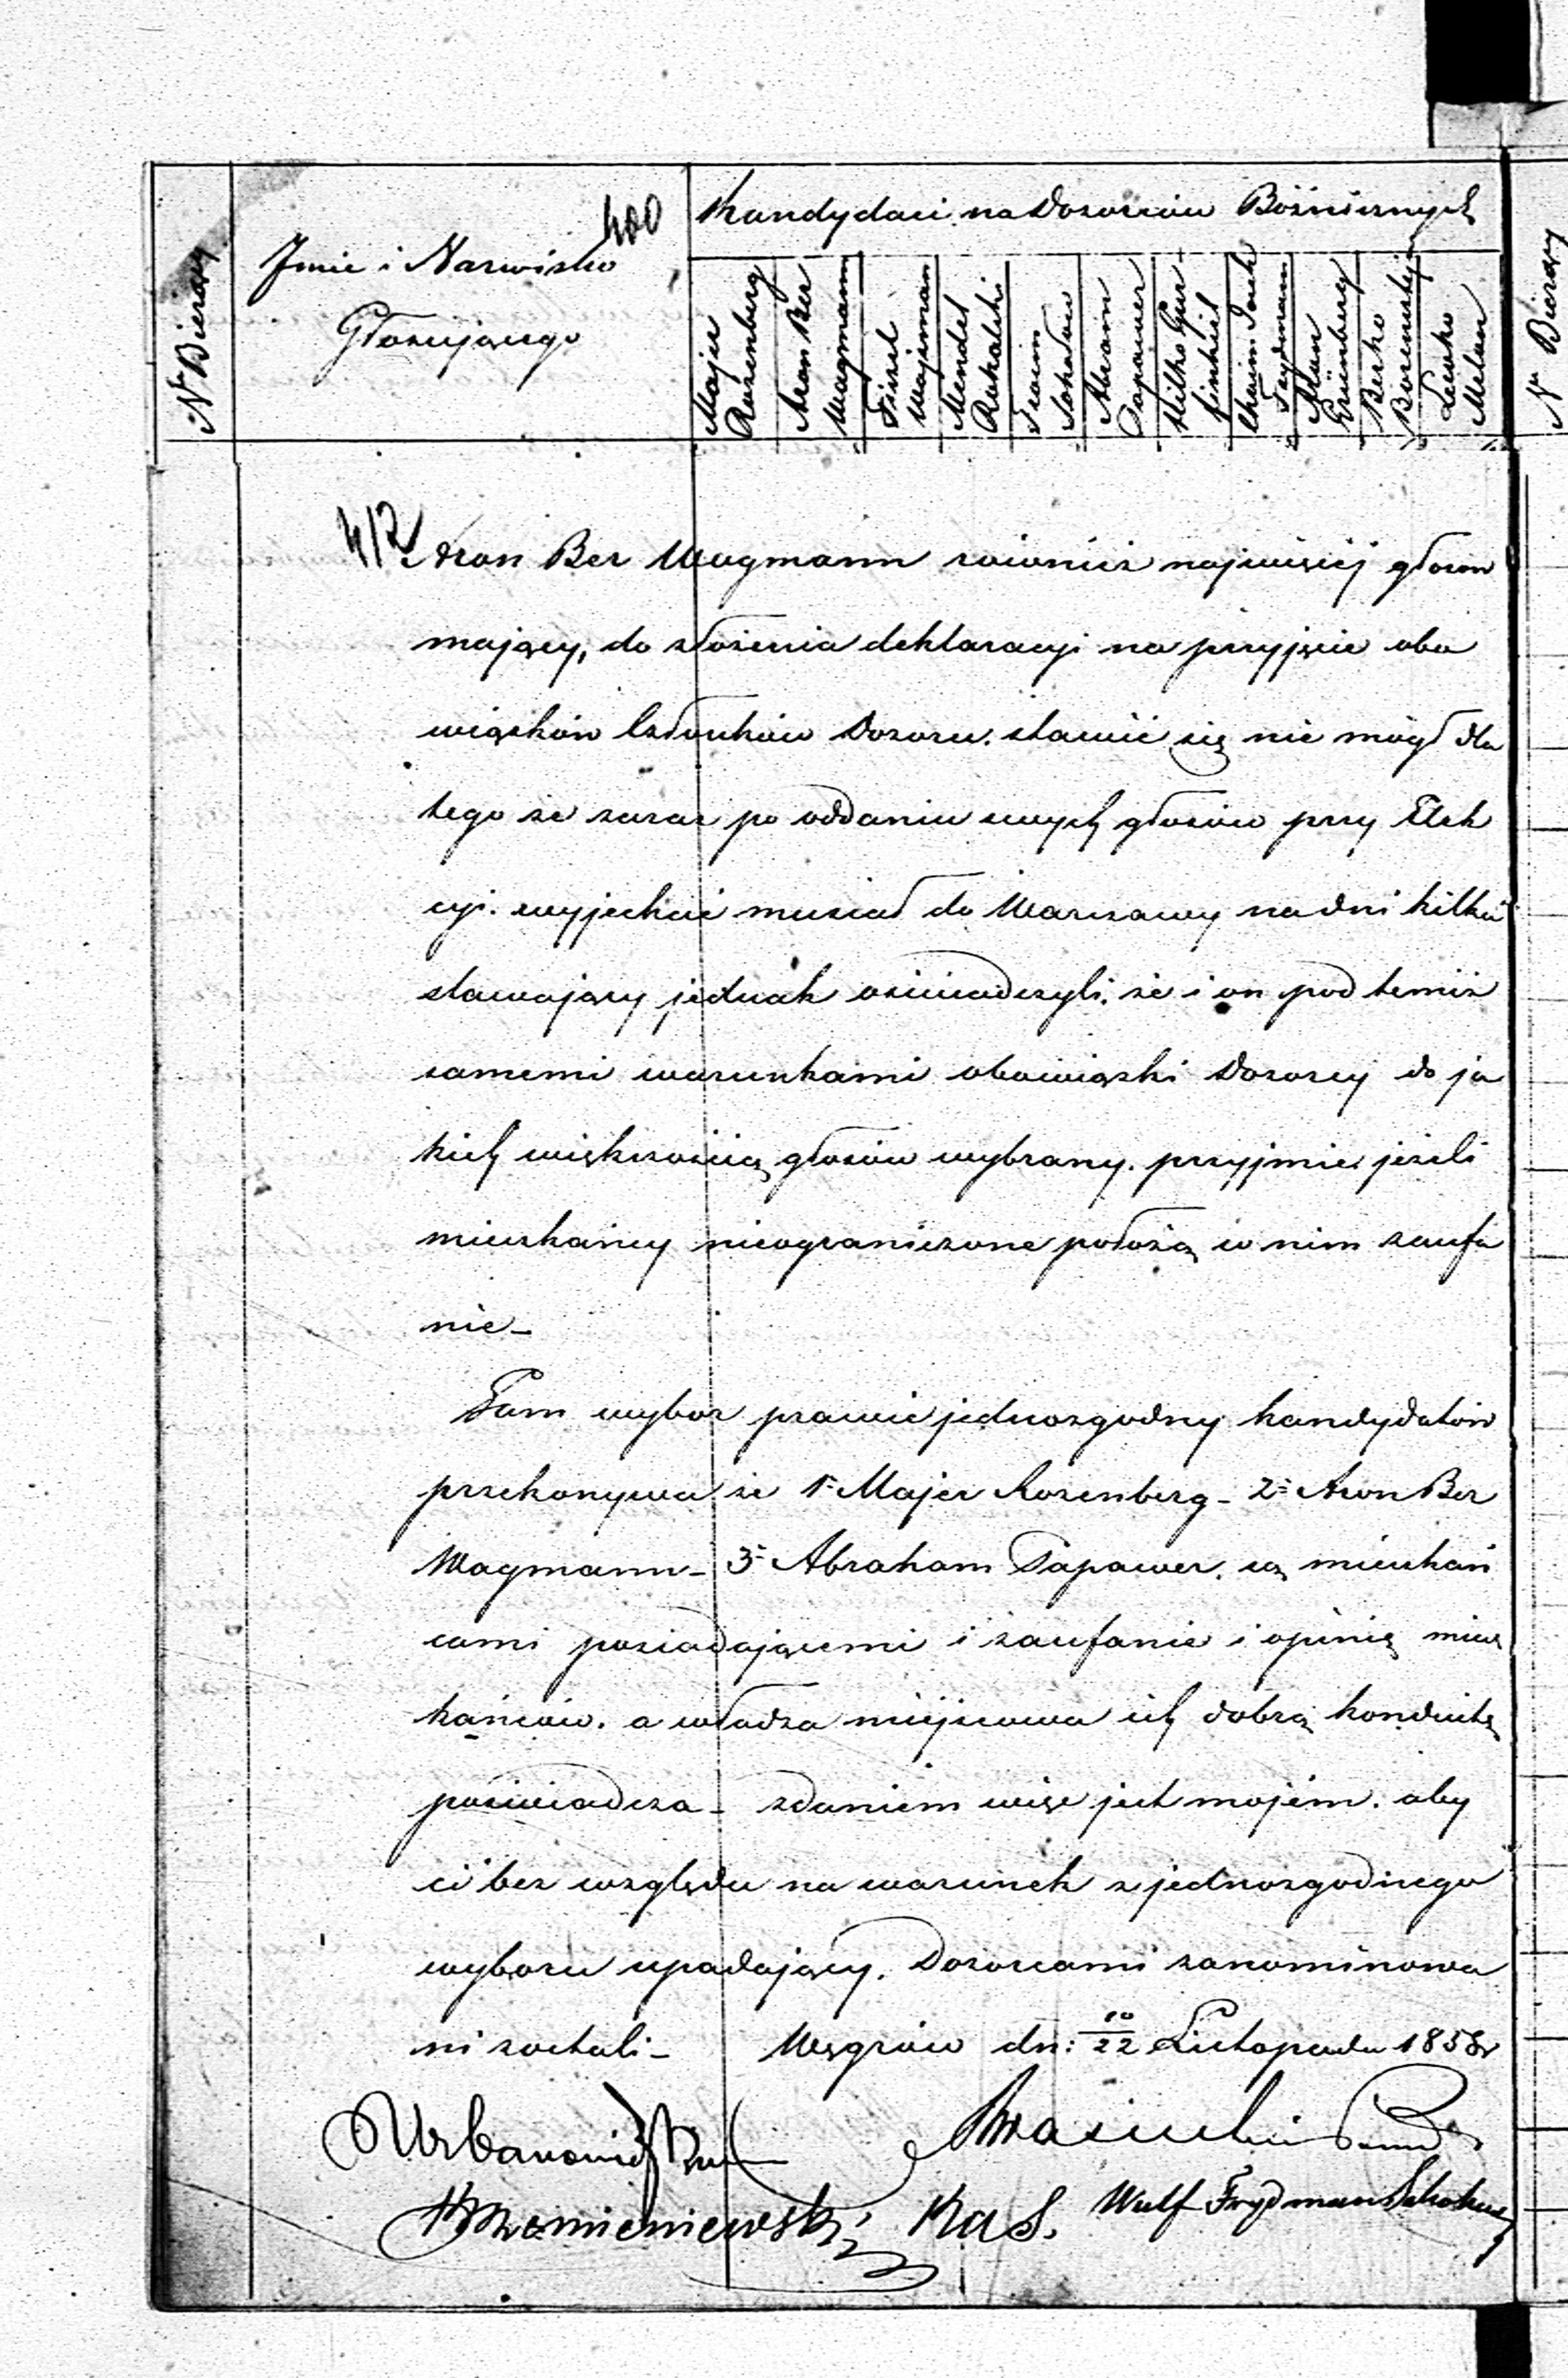 400
Kandydaci na Dozorców Bóżnicznych
Nr Bieżący
Imie i Nazwisko
Głosującego
Majer Rozenberg
Aron Ber Wagmann
Fiszel Wajsman
Mendel Rukalski
Froim
Abram Papawer
Hilko Finkiel
Chaim Frydmann
Grünberg
Berko
Lewko
Nr Bieżący
412
Aron Ber Wagmann również najwięcéj głosów
mający, do złożenia deklaracyi na przyjęcie obo
wiązków Członków Dozoru. stawić się nie mógł dla
tego że zaraz po oddaniu swych głosów przy Elek
cyi. wyjechać musiał do Warszawy na dni kilka
stawający jednak oświadczyli. że i on pod temiż
samemi warunkami obowiązki Dozorcy do ja
kich większością głosów wybrany. przyjmie jeżeli
mieszkańcy nieograniczone położą w nim zaufa
nie_
Sam wybor prawie jednozgodny kandydatów
przekonywa że 1 Majer Rozenberg _ 2 Aron Ber
Wagmann _ 3 Abraham Papawer. są mieszkań
cami posiadającemi i zaufanie i opinię miesz
kańców. a władza miejscowa ich dobrą konduitę
poświadcza _ zdaniem więc jest mojém. aby
ci bez względu na warunek z jednozgodnego
wyboru upadający. Dozorcami zanominowa
ni zostali _ Węgrów dn: 10/22 Listopada 1858r
Urbanowicz
Krzemieniewski Kas. Wulf Frydman